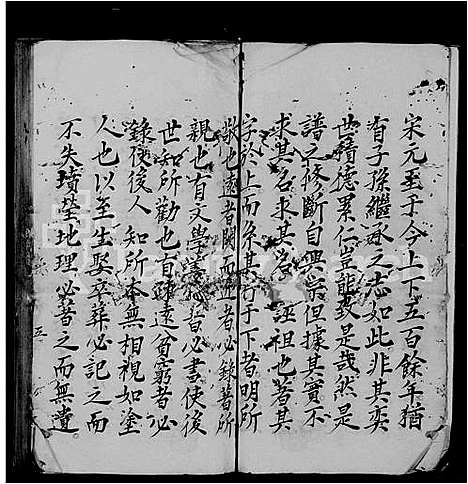 宋元至于今上下五百餘年猶
有子孫繼承之志如此非其奕
世積德累仁豈能致是哉然是
譜之修斷自興宗但據其實不
求其名求其名誣祖也著其
字於上而系其行于下者明所
敬也遠者闕而近者必錄者所
親也有文學善惡者必書使後
世知所勸也有疎遠貧窮者必
錄使後人知所本無相視如塗
人也以至生娶卒葬必記之而
不失墳塋地理必著之而無遺
五